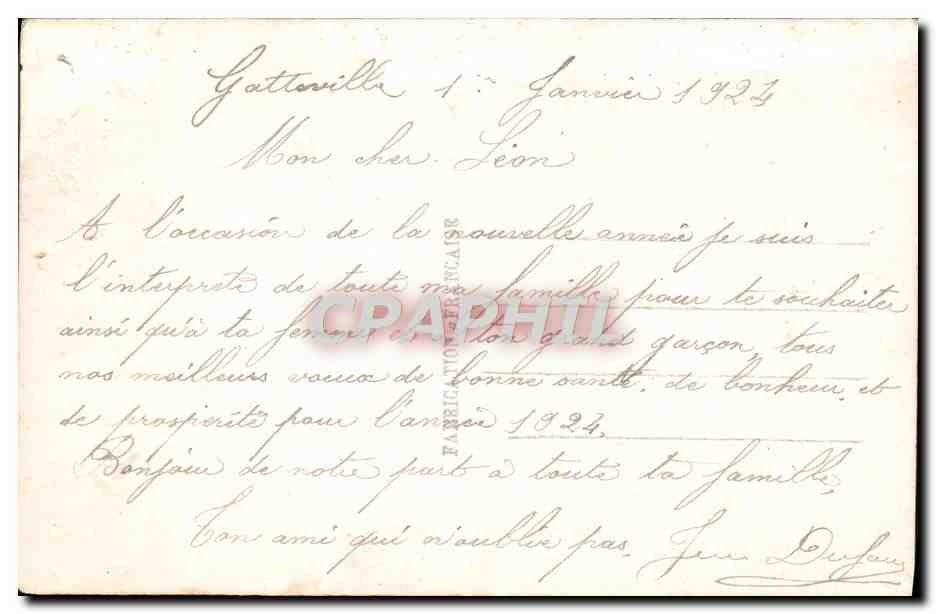 Gatteville 1er Janvier 1924
Mon cher Léon
A l'occasion de la nouvelle année je suis
l'interprete de toute ma famille pour te souhaiter
ainsi qu'à ta femme ton grand garçon, tous
nos meilleurs voeux de bonne santé, de bonheur, et
de prospérité pour l'année 1924.
Bonjour de notre part a toute ta famille,
Ton ami qui n'oublie pas. Dufour
FABRICATION FRANCAISE
CPAPHIL